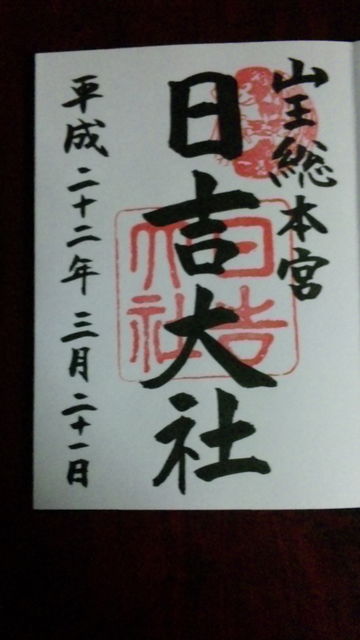 山王総本宮
日吉大社
平成二十二年三月二十一日
日吉
大社